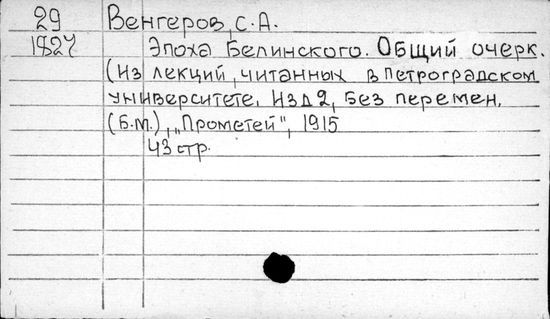 29 Венгеров, С.А.
1827 Эпоха Белинского. Общий очерк.
(Из лекций, читанных в Петроградском
университете. Изд 2, без перемен.
(Б.м.), „Прометей", 1915
43 стр.